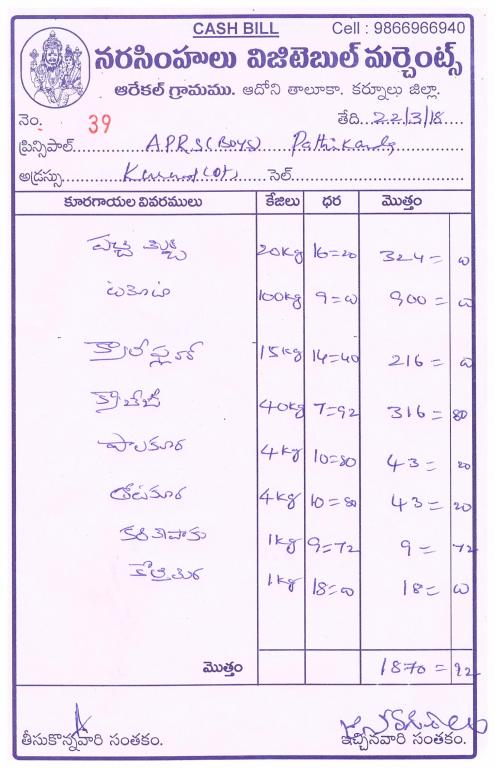 CASH BILL Cell : 9866966940
నరసింహులు విజిటెబుల్ మర్చెంట్స్
ఆరేకల్ గ్రామము. ఆదోని తాలూకా. కర్నూలు జిల్లా.
నెం. 39 తేది...22/3/18
ప్రిన్సిపాల్ APRS (Boys)
అడ్రస్సు సెల్
కూరగాయల వివరములు కేజిలు ధర మొత్తం
పచ్చి మిర్చి 20kg 16=20 324= 00
టమోటా 100kg 9=00 900= 00
15kg 14=40 216= 00
క్యాబేజి 40kg 7=92 316= 80
పాలకూర 4kg 10=80 43= 20
తోటకూర 4kg 10=80 43= 20
కరివేపాకు 1kg 9=72 9= 72
కొత్తిమీర 1kg 18=00 18= 00
మొత్తం 1870=92
తీసుకొన్నవారి సంతకం. ఇచ్చినవారి సంతకం.